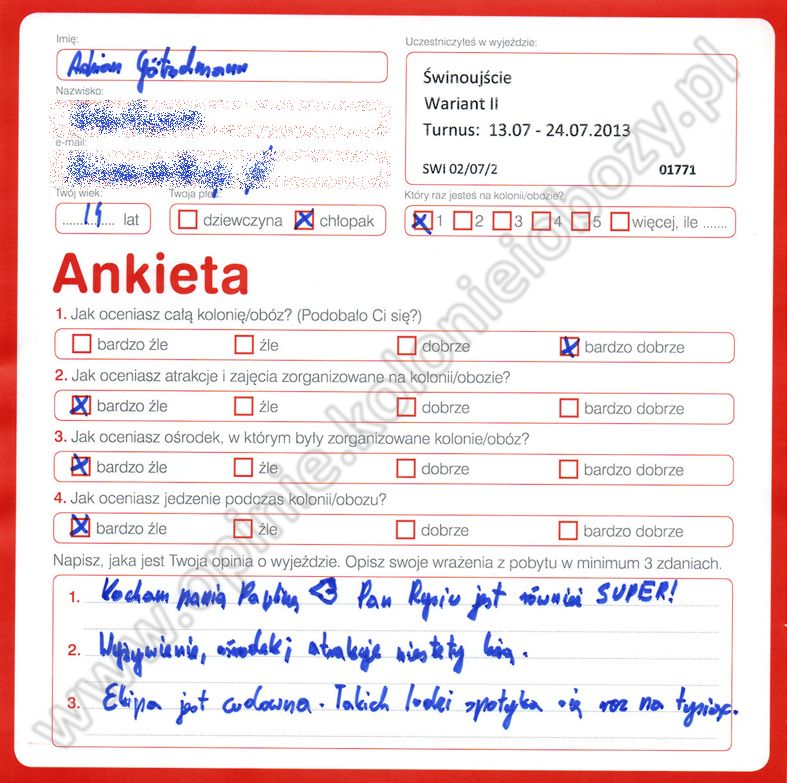 Imię:
Adrian
Uczestniczyłeś w wyjeździe:
Nazwisko:
Świnoujście
Wariant II
Turnus: 13.07 - 24.07.2013
e-mail:
SWI 02/07/2 01771
Twój wiek: Twoja płeć:
Który raz jesteś na kolonii/obozie?
14 lat dziewczyna chłopak
1 2 3 4 5 więcej, ile .......
Ankieta
1. Jak oceniasz całą kolonię/obóz? (Podobało Ci się?)
bardzo źle źle dobrze bardzo dobrze
2. Jak oceniasz atrakcje i zajęcia zorganizowane na kolonii/obozie?
bardzo źle źle dobrze bardzo dobrze
3. Jak oceniasz ośrodek, w którym były zorganizowane kolonie/obóz?
bardzo źle źle dobrze bardzo dobrze
4. Jak oceniasz jedzenie podczas kolonii/obozu?
bardzo źle źle dobrze bardzo dobrze
Napisz, jaka jest Twoja opinia o wyjeździe. Opisz swoje wrażenia z pobytu w minimum 3 zdaniach.
1. Kocham panią Paulinę <3 Pan Rysiu jest również SUPER!
2. Wyżywienie, ośrodek i atrakcje niestety lipa.
3. Ekipa jest cudowna. Takich ludzi spotyka się raz na tysiąc.
www.opinie.kolonieiobozy.pl